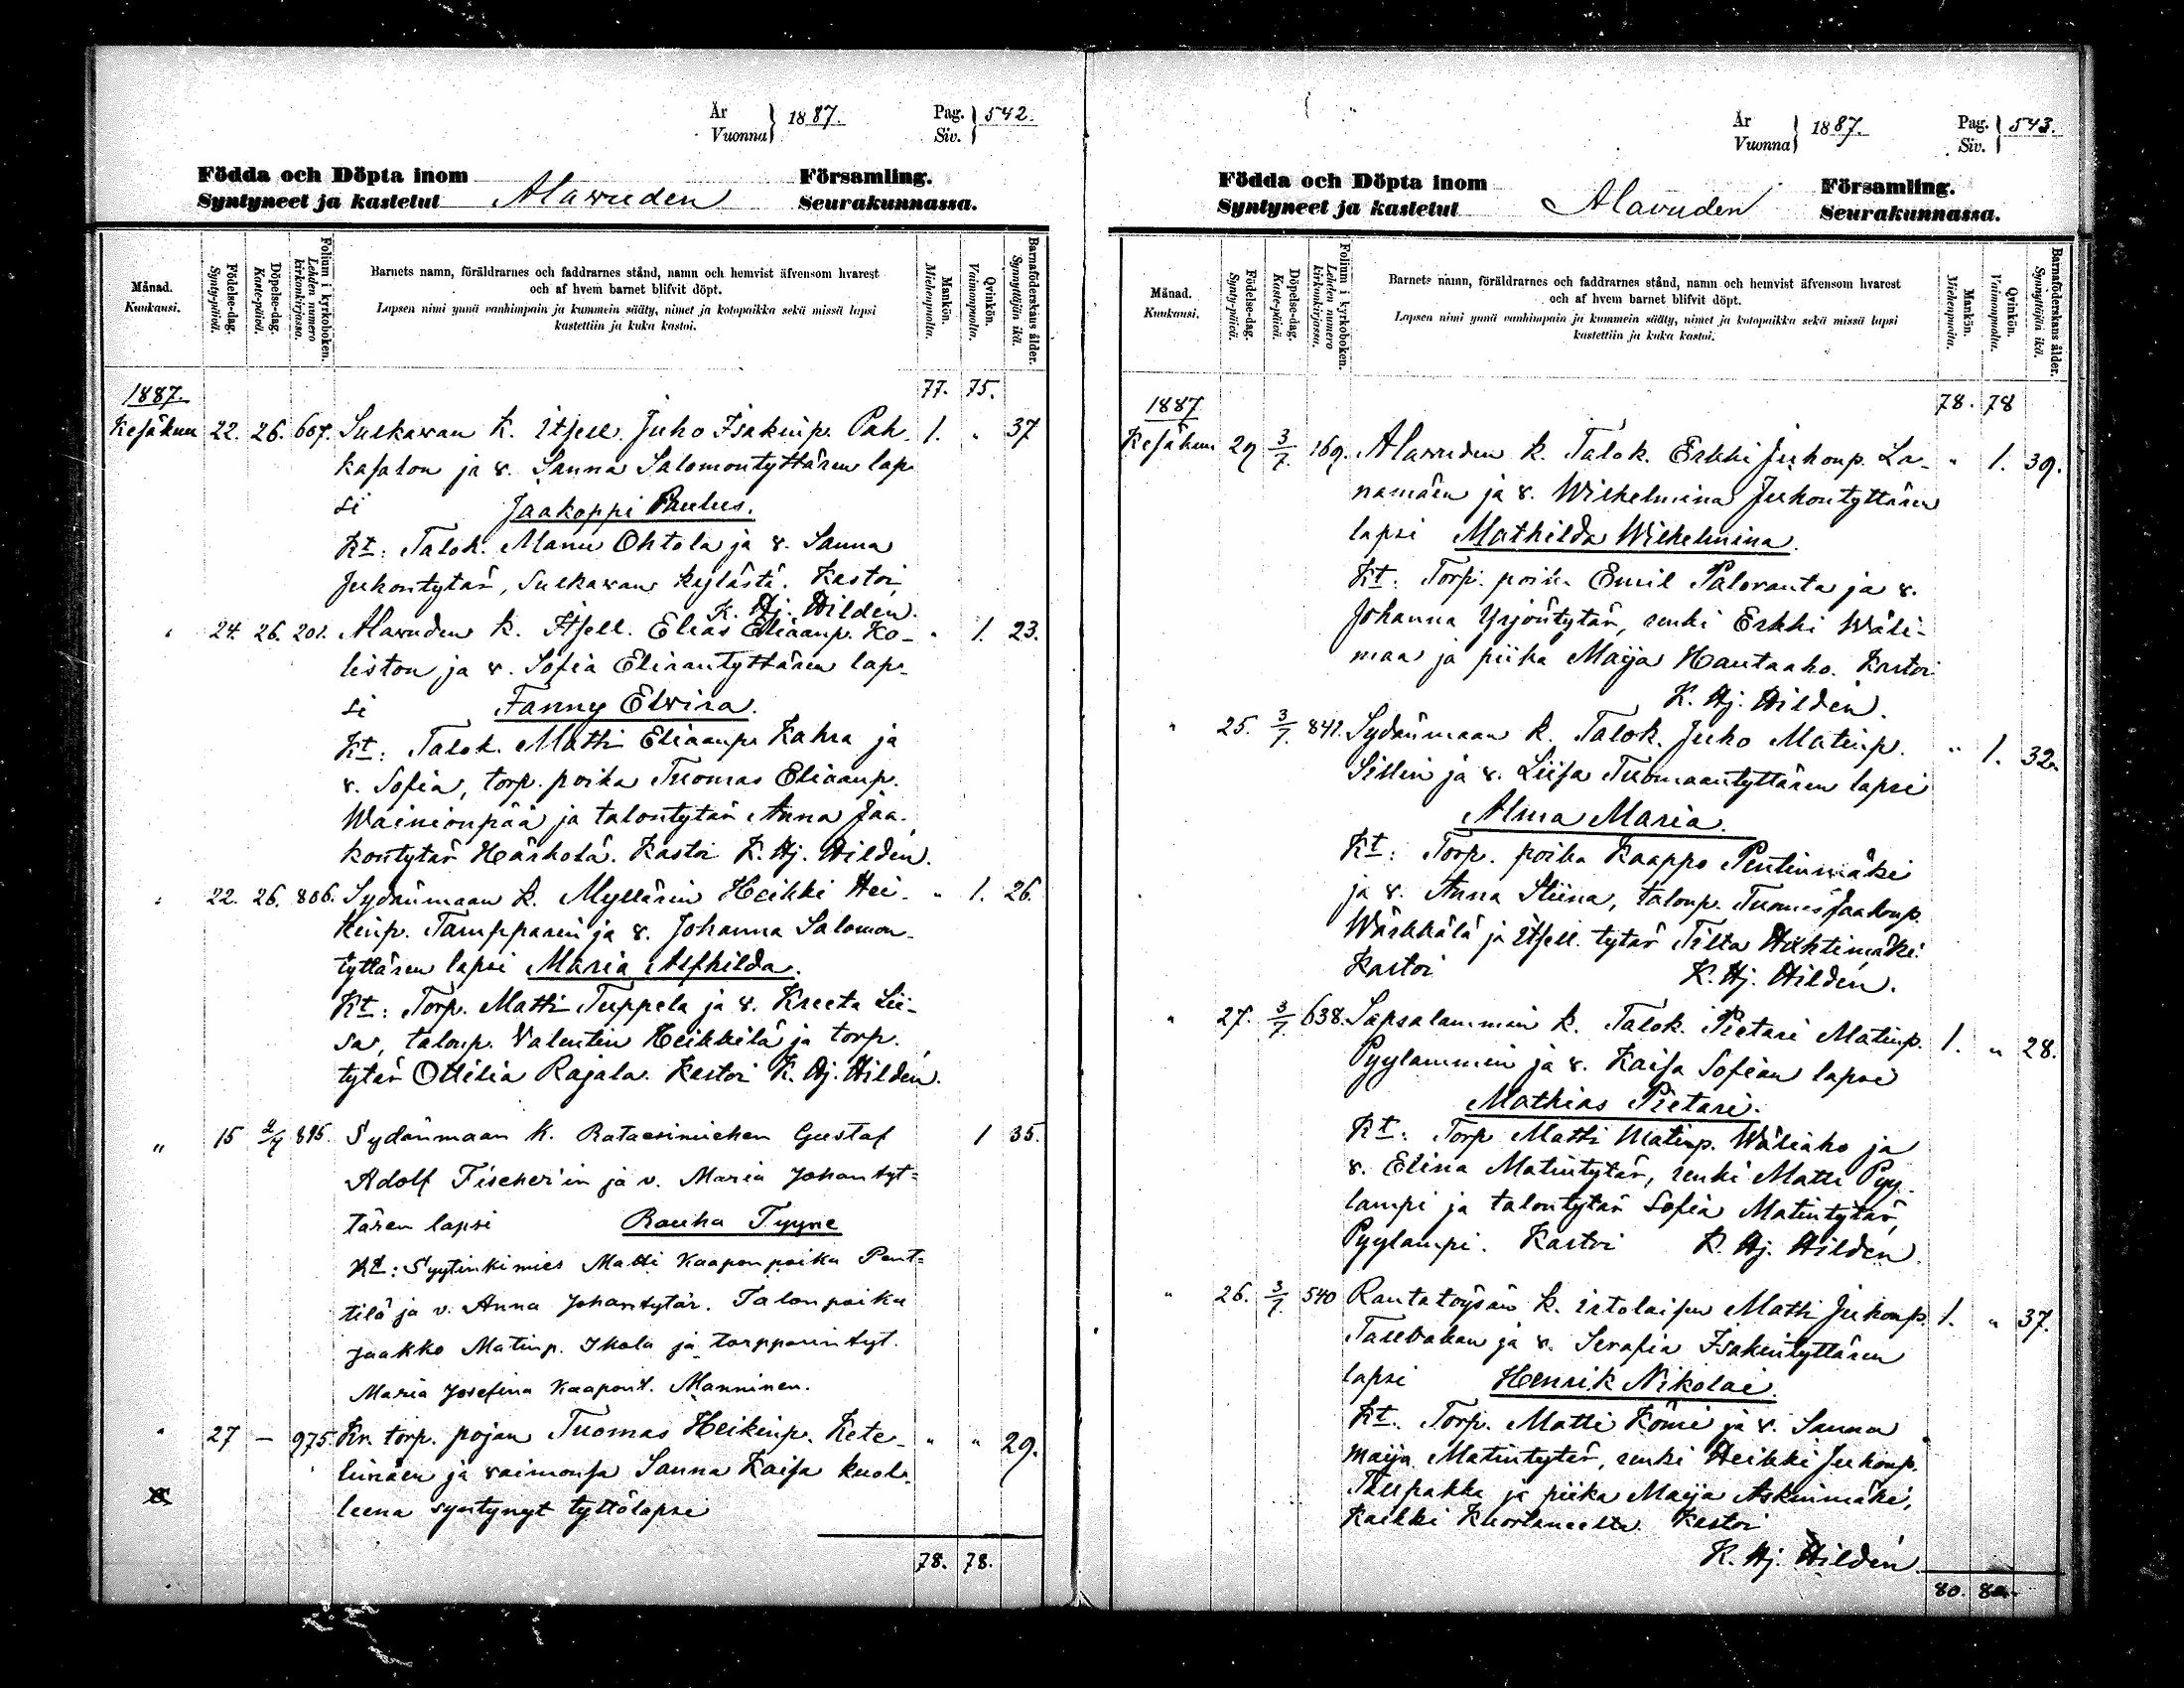 År
Vuonna } 1887.
Pag.
Siv. } 542.
Födda och Döpta inom
Syntyneet ja kastetut Alavuden
Församling.
Seurakunnassa.
Månad.
Kuukausi.
Födelse-dag.
Synty-päivä.
Döpelse-dag.
Kaste-päivä.
Folium i kyrkoboken.
Lehden numero kirkonkirjassa.
Barnets namn, föräldrarnes och faddrarnes stånd, namn och hemvist äfvensom hvarest
och af hvem barnet blifvit döpt.
Lapsen nimi ynnä vanhimpain ja kummein sääty, nimet ja kotopaikka sekä missä lapsi
kastettiin ja kuka kastoi.
Mankön.
Miehenpuolta.
Qvinkön.
Vaimonpuolta.
Barnaföderskans ålder.
Synnyttäjän ikä.
1887. 77. 75.
Kesäkuu 22. 26. 667. Sulkavan k. itsell. Juho Isakinp. Pah- 1. " 37
kasalon ja v. Sanna Salomontyttären lap
si Jaakoppi Paulus.
Kt: Talok. Manu Ohtola ja v. Sanna
Juhontytär, Sulkavan kylästä. Kastoi
K. Hj. Hildén.
" 24. 26. 201. Alavuden k. Itsell. Elias Eliaanp. Ko- " 1. 23.
liston ja v. Sofia Eliaantyttären lap-
si Fanny Elvira.
Kt: Talok. Matti Eliaanp. Kahra ja
v. Sofia, torp. poika Tuomas Eliaanp.
Wainionpää ja talontytär Anna Jaa-
kontytär Härkolä. Kastoi K. Hj. Hildén.
" 22. 26. 806. Sydänmaan k. Myllärin Heikki Hei- " 1. 26.
kinp. Tampparin ja v. Johanna Salomon-
tyttären lapsi Maria Alfhilda.
Kt: Torp. Matti Tuppela ja v. Kreeta Lii-
sa, talonp. Valentin Heikkilä ja torp.
tytär Ottilia Rajala. Kastoi K. Hj. Hildén.
" 15 2/7 895. Sydänmaan k. Rataesimiehen Gustaf 1 35.
Adolf Fischer'in ja v. Maria Johantyt=
tären lapsi Rauha Tyyne
Kt: Syytinkimies Matti Kaaponpoika Pent=
tilä ja v. Anna Johantytär. Talonpoika
Jaakko Matinp. Ikola ja torpparintyt.
Maria Josefina Kaapont. Manninen.
" 27 — 975. Kr. torp. pojan Tuomas Heikinp. Kete- " " 29.
linäen ja vaimonsa Sanna Kaisa kuol-
leena syntynyt tyttölapsi
78. 78.
År
Vuonna } 1887.
Pag.
Siv. } 543.
Födda och Döpta inom
Syntyneet ja kastetut Alavuden
Församling.
Seurakunnassa.
Månad.
Kuukausi.
Födelse-dag.
Synty-päivä.
Döpelse-dag.
Kaste-päivä.
Folium i kyrkoboken.
Lehden numero kirkonkirjassa.
Barnets namn, föräldrarnes och faddrarnes stånd, namn och hemvist äfvensom hvarest
och af hvem barnet blifvit döpt.
Lapsen nimi ynnä vanhimpain ja kummein sääty, nimet ja kotopaikka sekä missä lapsi
kastettiin ja kuka kastoi.
Mankön.
Miehenpuolta.
Qvinkön.
Vaimonpuolta.
Barnaföderskans ålder.
Synnyttäjän ikä.
1887 78. 78
Kesäkuu 29 3/7. 169. Alavuden k. Talok. Erkki Juhonp. La- " 1. 39.
namäen ja v. Wilhelmina Juhontyttären
lapsi Mathilda Wilhelmina.
Kt: Torp. poika Emil Paloranta ja v.
Johanna Yrjöntytär, renki Erkki Wäli-
maa ja piika Maija Hautaaho. Kastoi
K. Hj. Hildén.
" 25. 3/7. 841. Sydänmaan k. Talok. Juho Matinp. " 1. 32.
Sillin ja v. Liisa Tuomaantyttären lapsi
Alma Maria.
Kt: Torp. poika Kaappo Pentinmäki
ja v. Anna Stiina, talonp. Tuomas Jaakonp.
Wärkkälä ja itsell. tytär Tilta Huhtimäki.
Kastoi K. Hj. Hildén.
" 27. 3/7. 638. Sapsalammin k. Talok. Pietari Matinp. 1. " 28.
Pyylammin ja v. Kaisa Sofian lapsi
Mathias Pietari.
Kt: Torp. Matti Matinp. Wäliaho ja
v. Elina Matintytär, renki Matti Pyy-
lampi ja talontytär Sofia Matintytär
Pyylampi. Kastoi K. Hj. Hildén.
" 26. 3/7. 540 Rantatöysän k. irtolaisen Matti Juhonp. 1. " 37.
ja v. Serafia Isakintyttären
lapsi Henrik Nikolai.
Kt. Torp. Matti Kömi ja v. Sanna
Maija Matintytär, renki Heikki Juhonp.
ja piika Maija Askinmäki,
kaikki Kuortaneelta. Kastoi
K. Hj. Hildén.
80. 80.